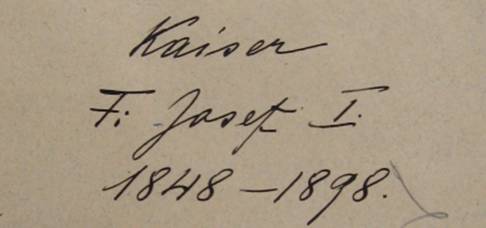 Kaiser
F: Josef I.
1848–1898.